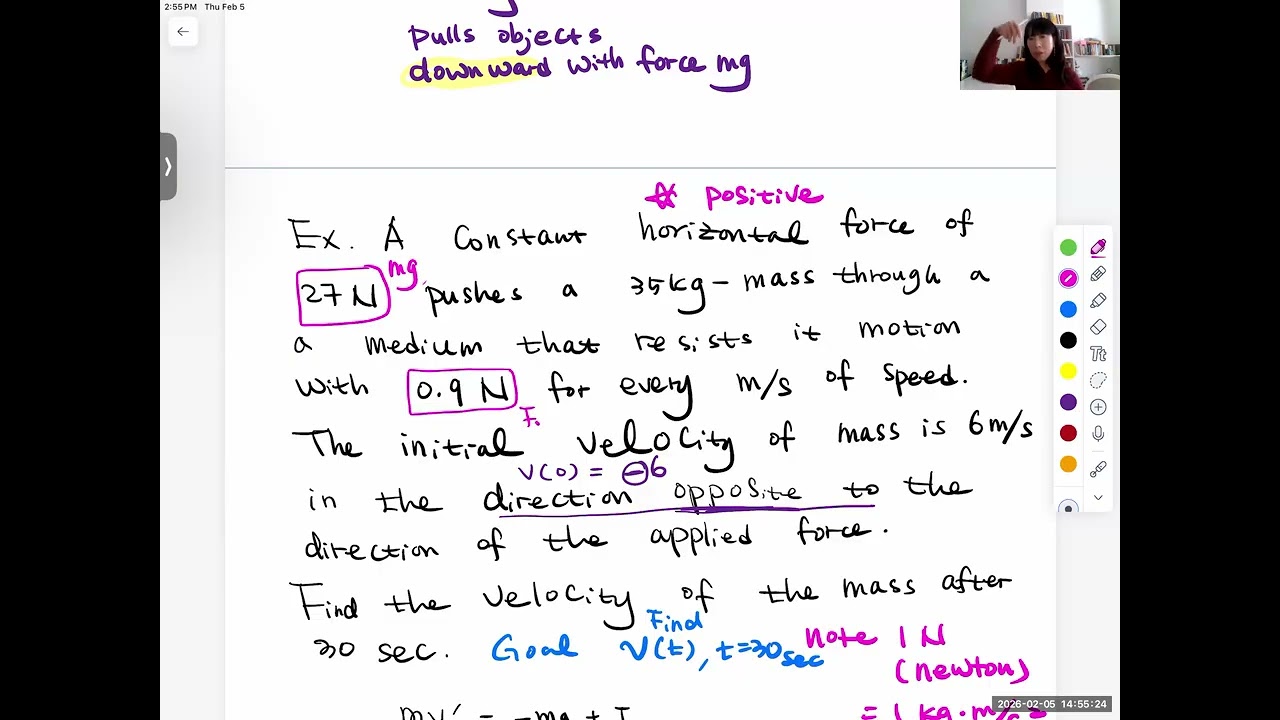 2:55 PM Thu Feb 5
pulls objects
downward with force mg
☆ positive
Ex. A constant horizontal force of
27 N mg pushes a 35kg-mass through a
a medium that resists it motion
with 0.9 N for every m/s of speed.
The initial velocity of mass is 6 m/s
v(0) = -6
in the direction opposite to the
direction of the applied force.
Find the velocity of the mass after
30 sec. Goal Find v(t), t=30 sec
note 1 N
(newton)
= 1 kg·m/s²
mv' = -mg +
Tt
2026-02-05 14:55:24